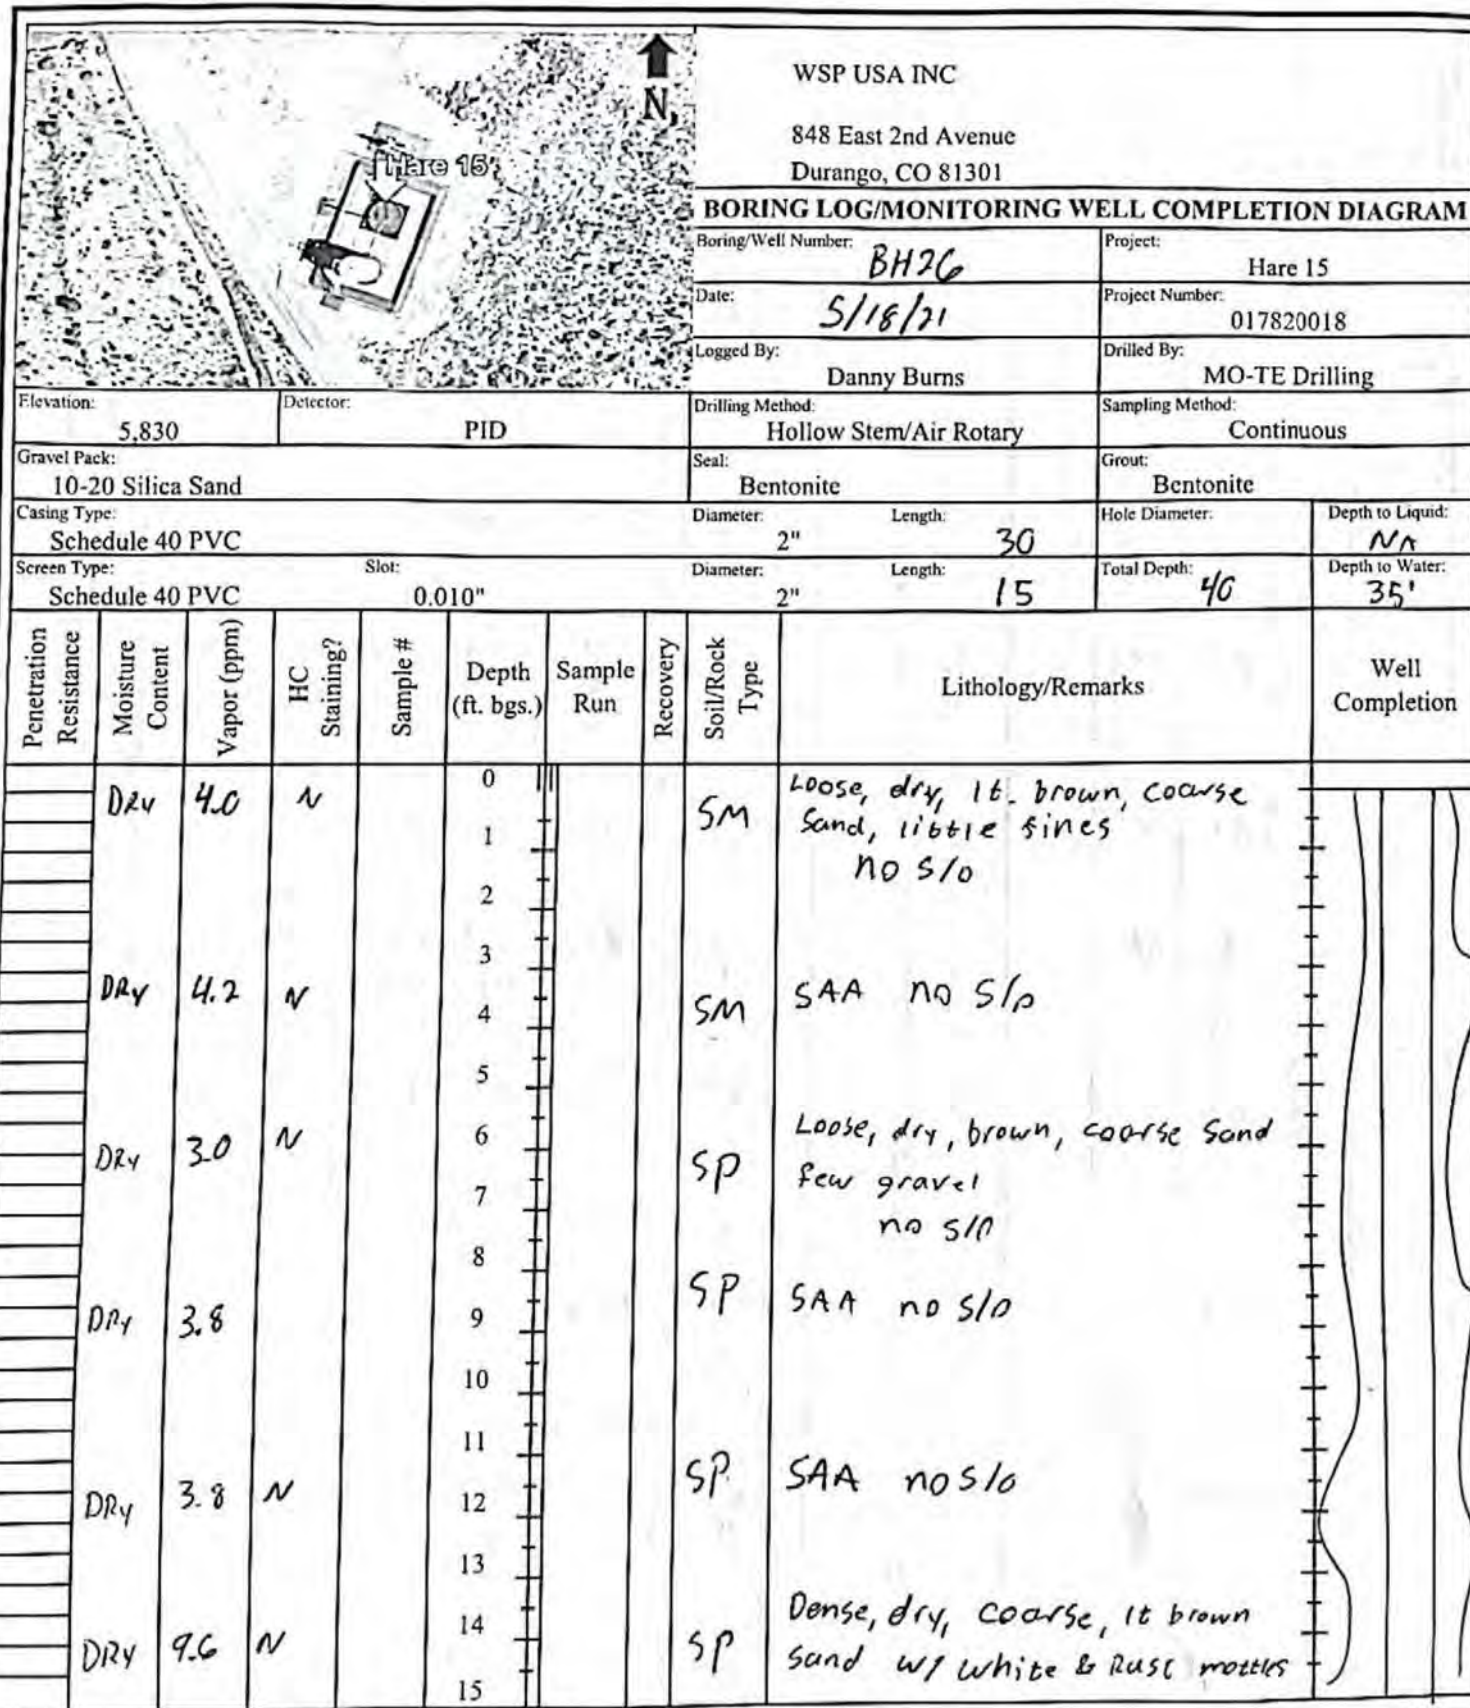 Hare 15
N
WSP USA INC
848 East 2nd Avenue
Durango, CO 81301
BORING LOG/MONITORING WELL COMPLETION DIAGRAM
Boring/Well Number: BH26
Project: Hare 15
Date: 5/18/21
Project Number: 017820018
Logged By: Danny Burns
Drilled By: MO-TE Drilling
Elevation: 5,830
Detector: PID
Drilling Method: Hollow Stem/Air Rotary
Sampling Method: Continuous
Gravel Pack: 10-20 Silica Sand
Seal: Bentonite
Grout: Bentonite
Casing Type: Schedule 40 PVC
Diameter: 2"
Length: 30
Hole Diameter:
Depth to Liquid: NA
Screen Type: Schedule 40 PVC
Slot: 0.010"
Diameter: 2"
Length: 15
Total Depth: 40
Depth to Water: 35'
Penetration Resistance
Moisture Content
Vapor (ppm)
HC Staining?
Sample #
Depth (ft. bgs.)
Sample Run
Recovery
Soil/Rock Type
Lithology/Remarks
Well Completion
0
DRy 4.0 N SM Loose, dry, lt. brown, coarse
1 Sand, little fines
no s/o
2
3
DRy 4.2 N 4 SM SAA no s/o
5
6 Loose, dry, brown, coarse sand
DRy 3.0 N SP few gravel
7
no s/o
8
DRy 3.8 9 SP SAA no s/o
10
11
DRy 3.8 N 12 SP SAA no s/o
13
14 Dense, dry, coarse, lt brown
DRY 9.6 N SP sand w/ white & Rust mottles
15